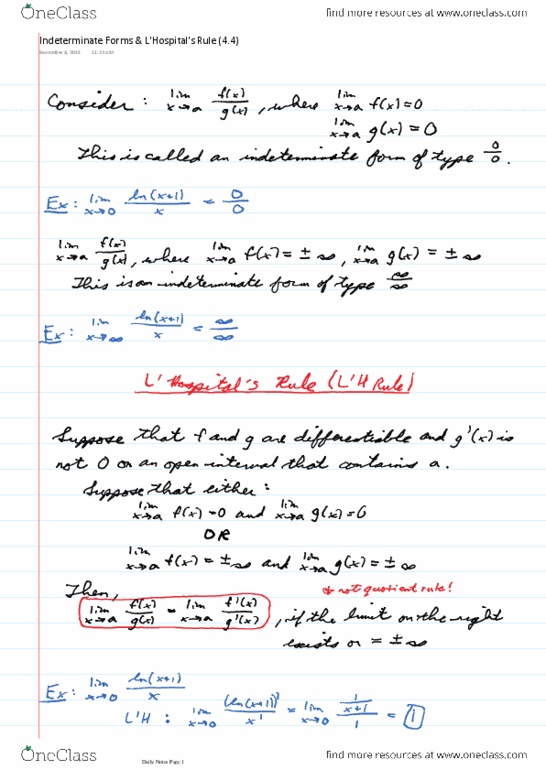 OneClass
find more resources at www.oneclass.com
Indeterminate Forms & L'Hospital's Rule (4.4)
Consider: lim x→a f(x)/g(x), where lim x→a f(x)=0
lim x→a g(x) = 0
This is called an indeterminate form of type 0/0.
Ex: lim x→0 ln(x+1)/x = 0/0
lim x→a f(x)/g(x), where lim x→a f(x) = ± ∞, lim x→a g(x) = ± ∞
This is an indeterminate form of type ∞/∞
Ex: lim x→∞ ln(x+1)/x = ∞/∞
L'Hospital's Rule (L'H Rule)
Suppose that f and g are differentiable and g'(x) is
not 0 on an open interval that contains a.
Suppose that either:
lim x→a f(x)=0 and lim x→a g(x)=0
OR
lim x→a f(x) = ± ∞ and lim x→a g(x) = ± ∞
Then,
not quotient rule!
lim x→a f(x)/g(x) = lim x→a f'(x)/g'(x), if the limit on the right
exists or = ± ∞
Ex: lim x→0 ln(x+1)/x
L'H : lim x→0 (ln(x+1))'/x' = lim x→0 (1/(x+1))/1 = 1
OneClass
Daily Notes Page 1
find more resources at www.oneclass.com